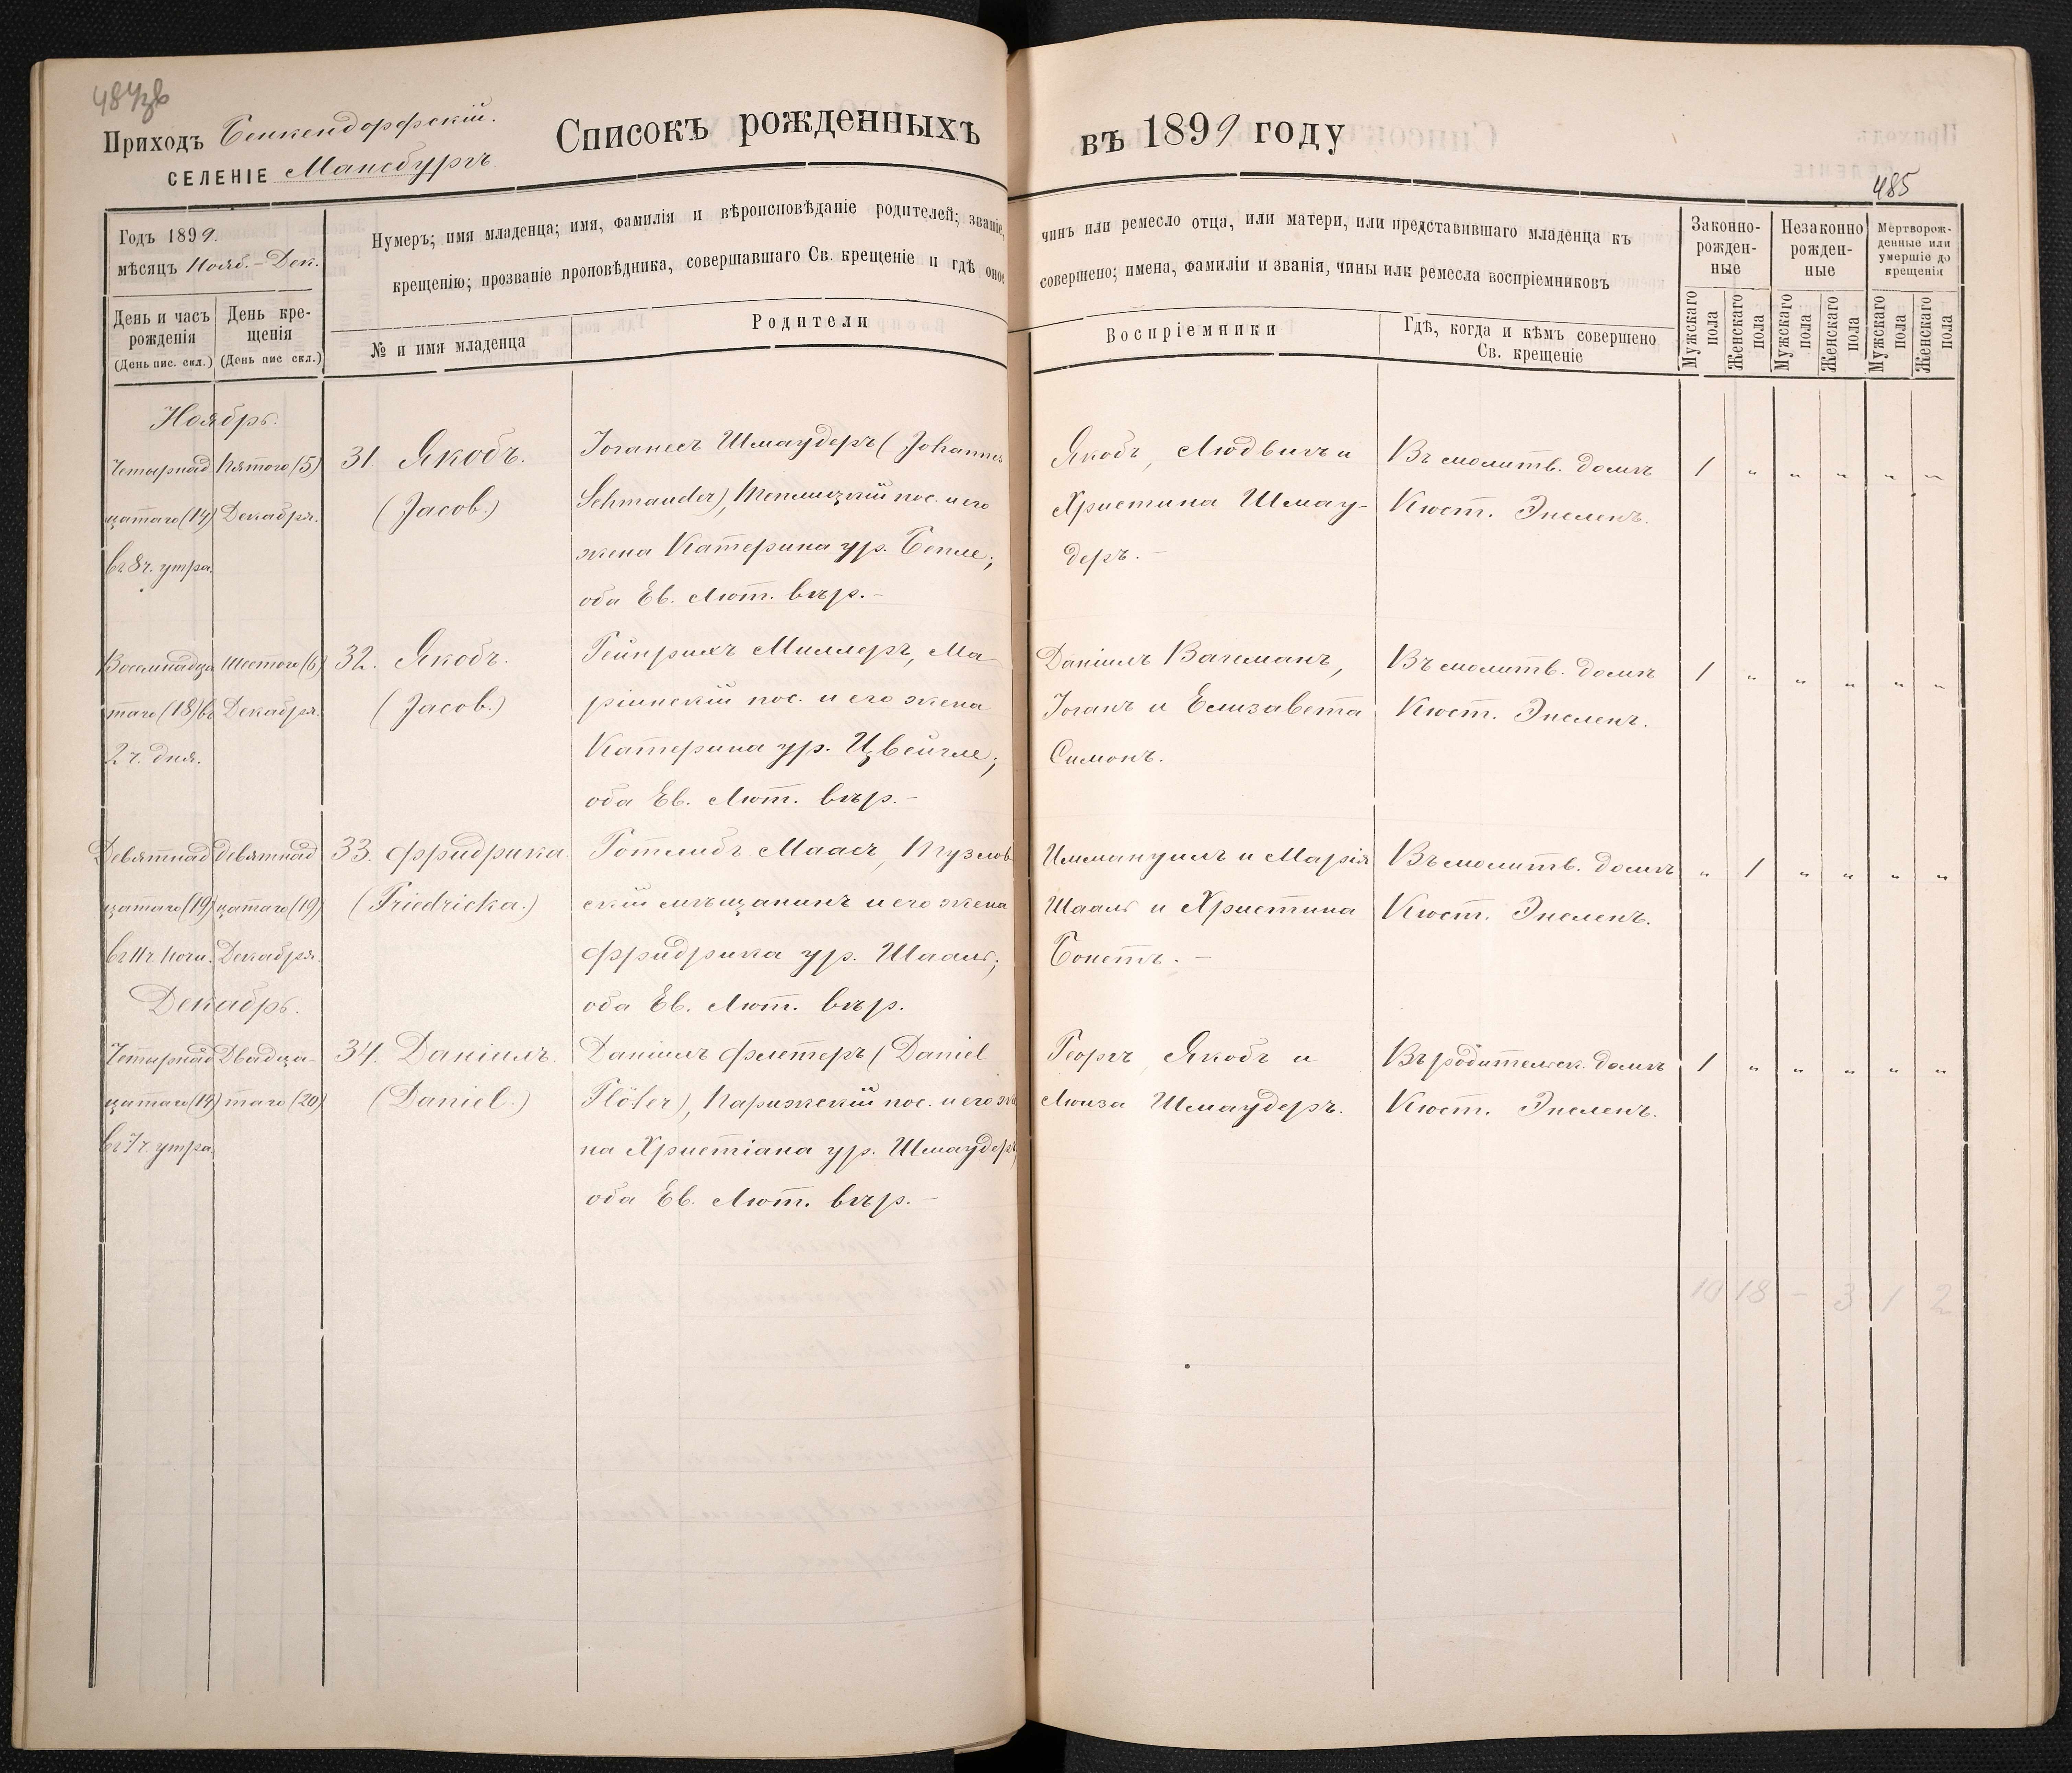 484зв
Приходъ Бенкендорфскій.
СЕЛЕНІЕ Мансбургъ
Списокъ рожденныхъ
въ 1899 году
485
Годъ 1899.
мѣсяцъ Нояб.-Дек.
Нумеръ; имя младенца; имя, фамилія и вѣроисповѣданіе родителей; званіе,
крещенію; прозваніе проповѣдника, совершавшаго Св. крещеніе и гдѣ оное
чинъ или ремесло отца, или матери, или представившаго младенца къ
совершено; имена, фамиліи и званія, чины или ремесла воспріемниковъ
Законно-
рожден-
ные
Незаконно
рожден-
ные
Мертворож-
денные или
умершіе до
крещенія
День и часъ
рожденія
(День пис. скл.)
День кре-
щенія
(День пис скл.)
№ и имя младенца
Родители
Воспріемники
Гдѣ, когда и кѣмъ совершено
Св. крещеніе
Мужскаго пола
Женскаго пола
Мужскаго пола
Женскаго пола
Мужскаго пола
Женскаго пола
Ноябрь.
Четырнад
цатаго (14)
въ 8 ч. утра.
Пятого (5)
Декабря.
31 Якобъ.
(Jacob.)
Іоганесъ Шмаудеръ (Johannes
Schmauder), Теплицкій пос. и его
жена Катерина ур.
оба Ев. Лют. вѣр.-
Якобъ, Людвигъ и
Христина Шмау-
деръ.-
Въ молитв. домѣ
Кюст. Энсленъ.
1 " " " " "
Восемнадца
таго (18) въ
2 ч. дня.
Шестого (6)
Декабря.
32. Якобъ.
(Jacob.)
Гейнрихъ Миллеръ, Ма-
ріинскій пос. и его жена
Катерина ур. Цвейгле;
оба Ев. Лют. вѣр.-
Даніилъ Вагеманъ,
Іоганъ и Елизавета
Симонъ.
Въ молитв. домѣ
Кюст. Энсленъ.
1 " " " " "
Девятнад
цатаго (19)
въ 11 ч ночи.
девятнад
цатаго (19)
Декабря.
33. Фридрика.
(Friedricka.)
Готлибъ Маасъ, Тузлов-
скій мѣщанинъ и его жена
Фридрика ур. Шааль;
оба Ев. Лют. вѣр.
Иммануилъ и Марія
Шааль и Христина
Бонетъ.-
Въ молитв. домѣ
Кюст. Энсленъ.
" 1 " " " "
Декабрь.
Четырнад
цатаго (14)
въ 7 ч. утра.
Двадца-
таго (20)
34. Даніилъ.
(Daniel.)
Даніилъ Флетеръ (Daniel
Flöter), Парижскій пос. и его же
на Христіана ур. Шмаудеръ,
оба Ев. Лют. вѣр.-
Георгъ, Якобъ и
Люиза Шмаудеръ.
Въ родительск. домѣ
Кюст. Энсленъ.
1 " " " " "
10 18 - 3 1 2